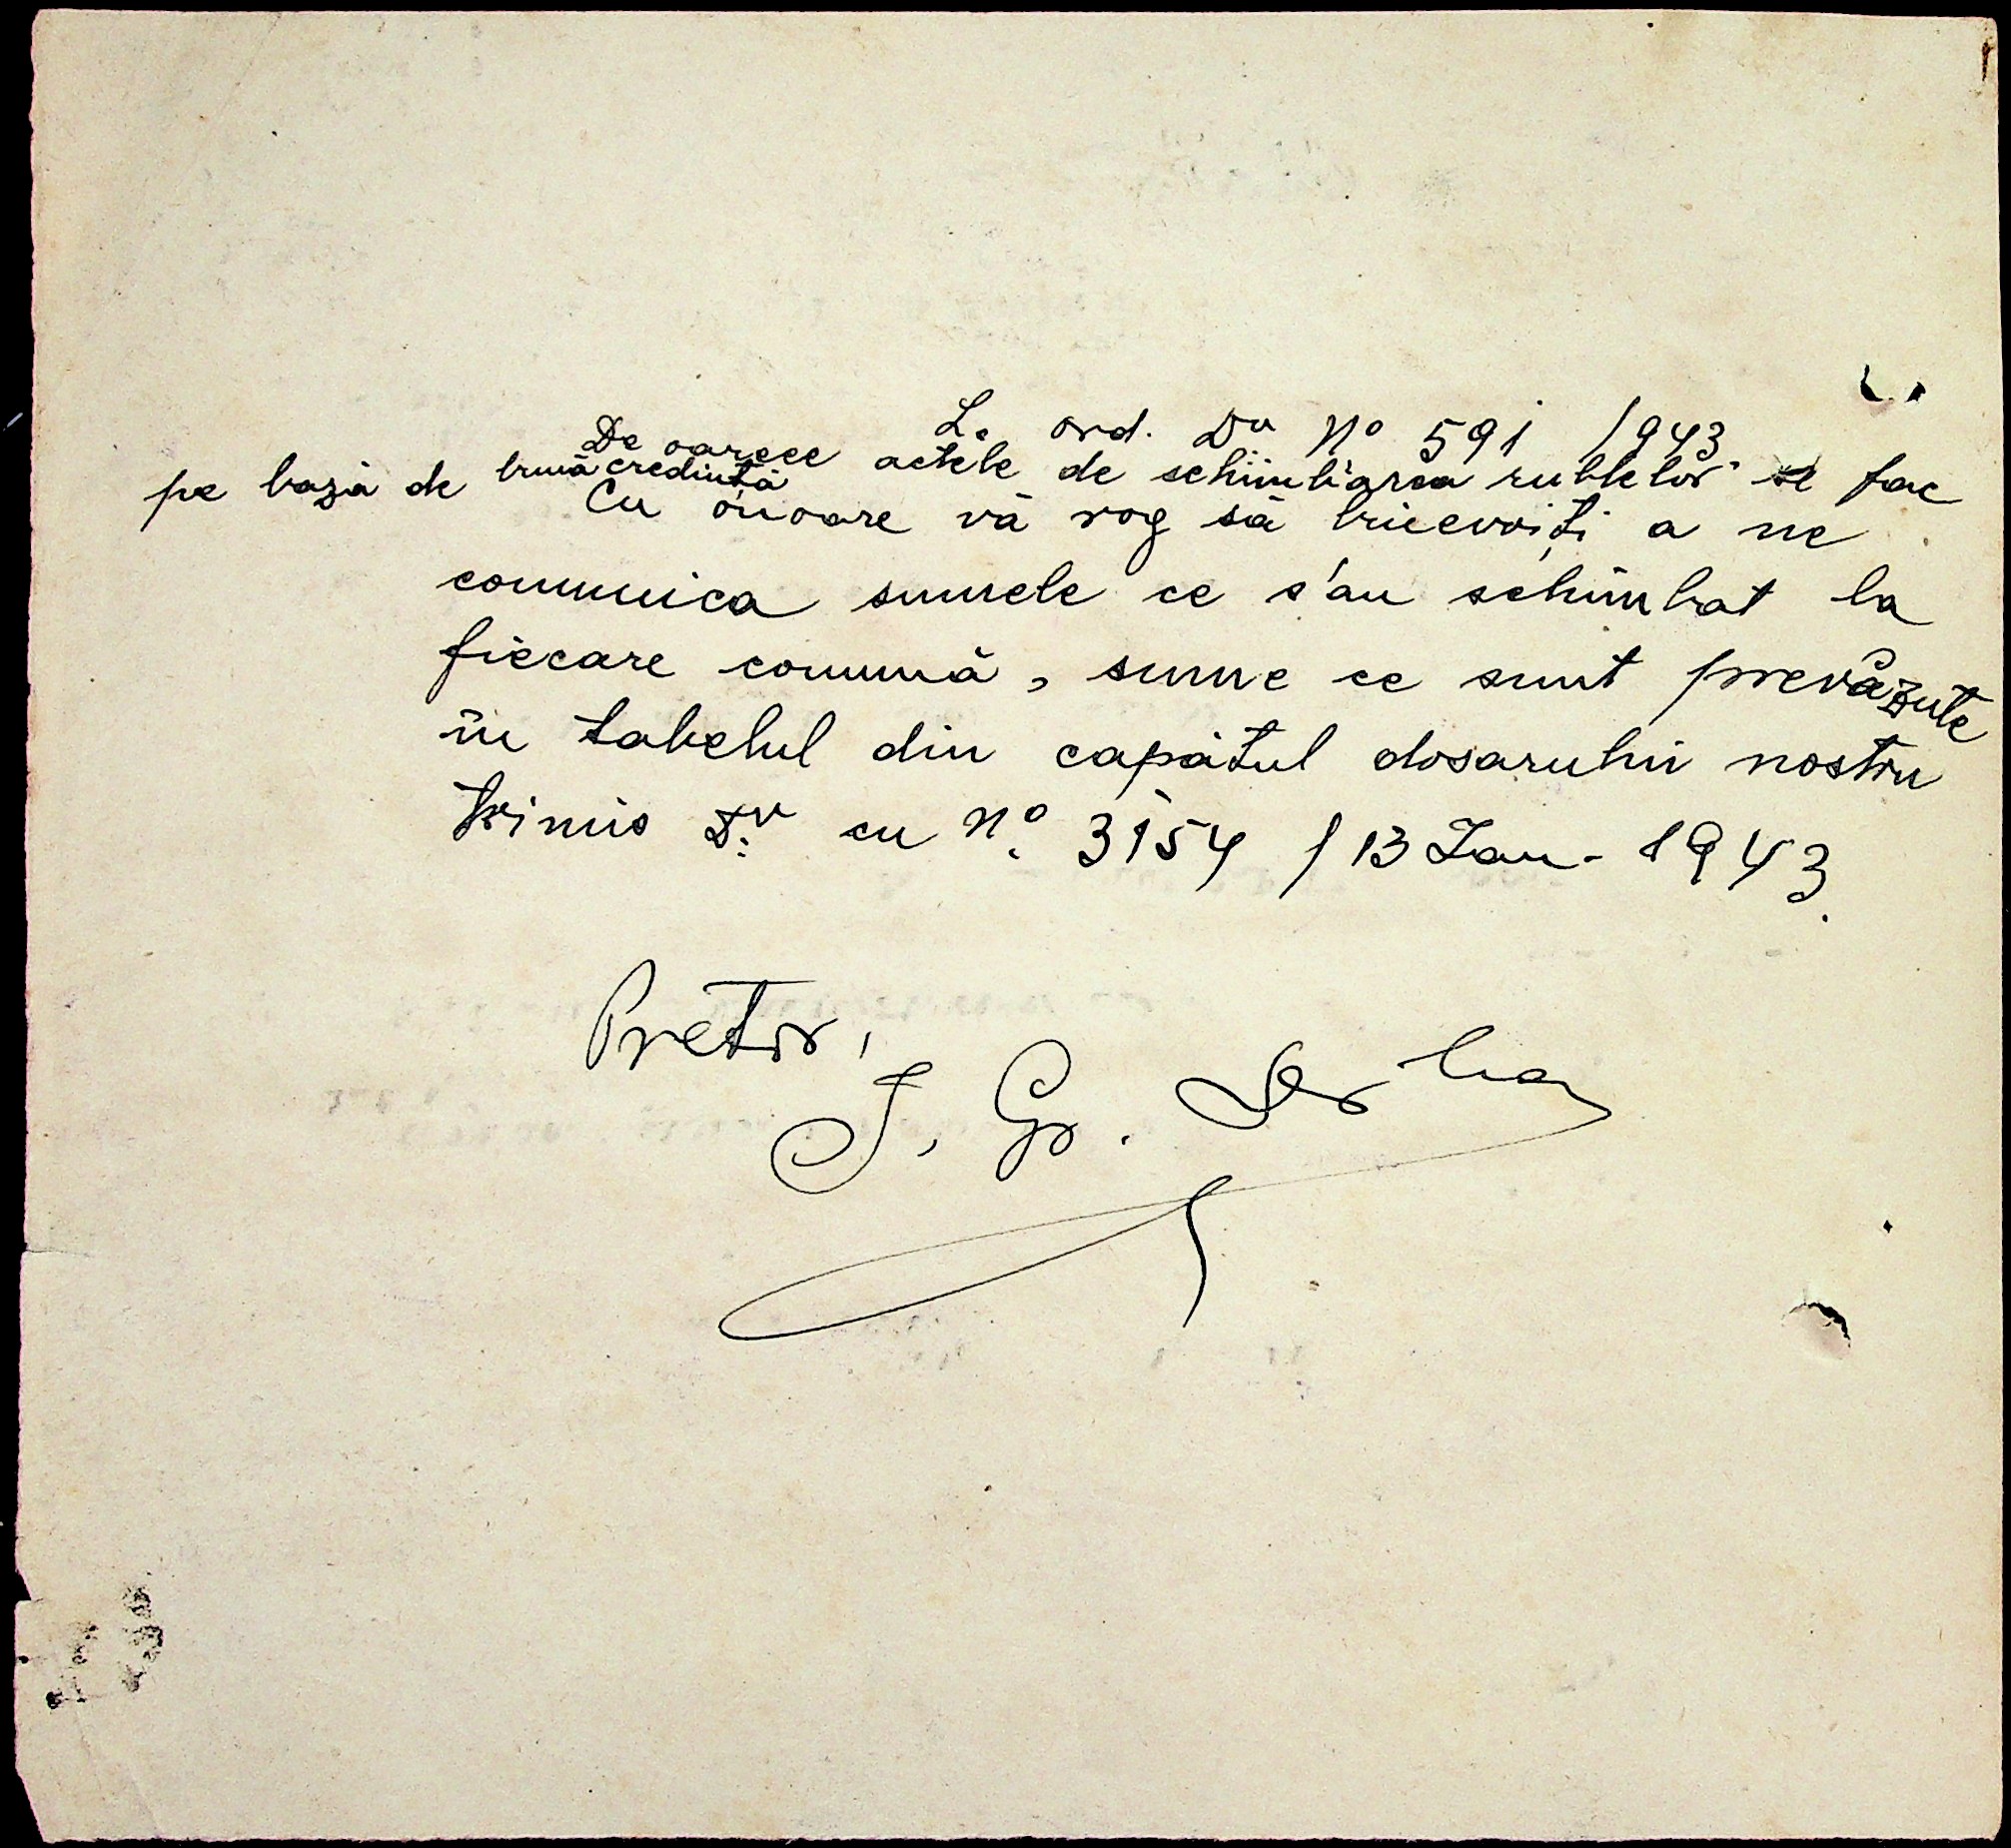 La ord. Dv No 591 / 1943
De oarece actele de schimbarea rublelor se fac
pe bază de bună credință
Cu onoare vă rog să binevoiți a ne
comunica sumele ce s'au schimbat la
fiecare comună, sume ce sunt prevăzute
în tabelul din capătul dosarului nostru
trimis Dv. cu No. 3154 / 13 Ian. 1943.
Pretor,
I. Gr.